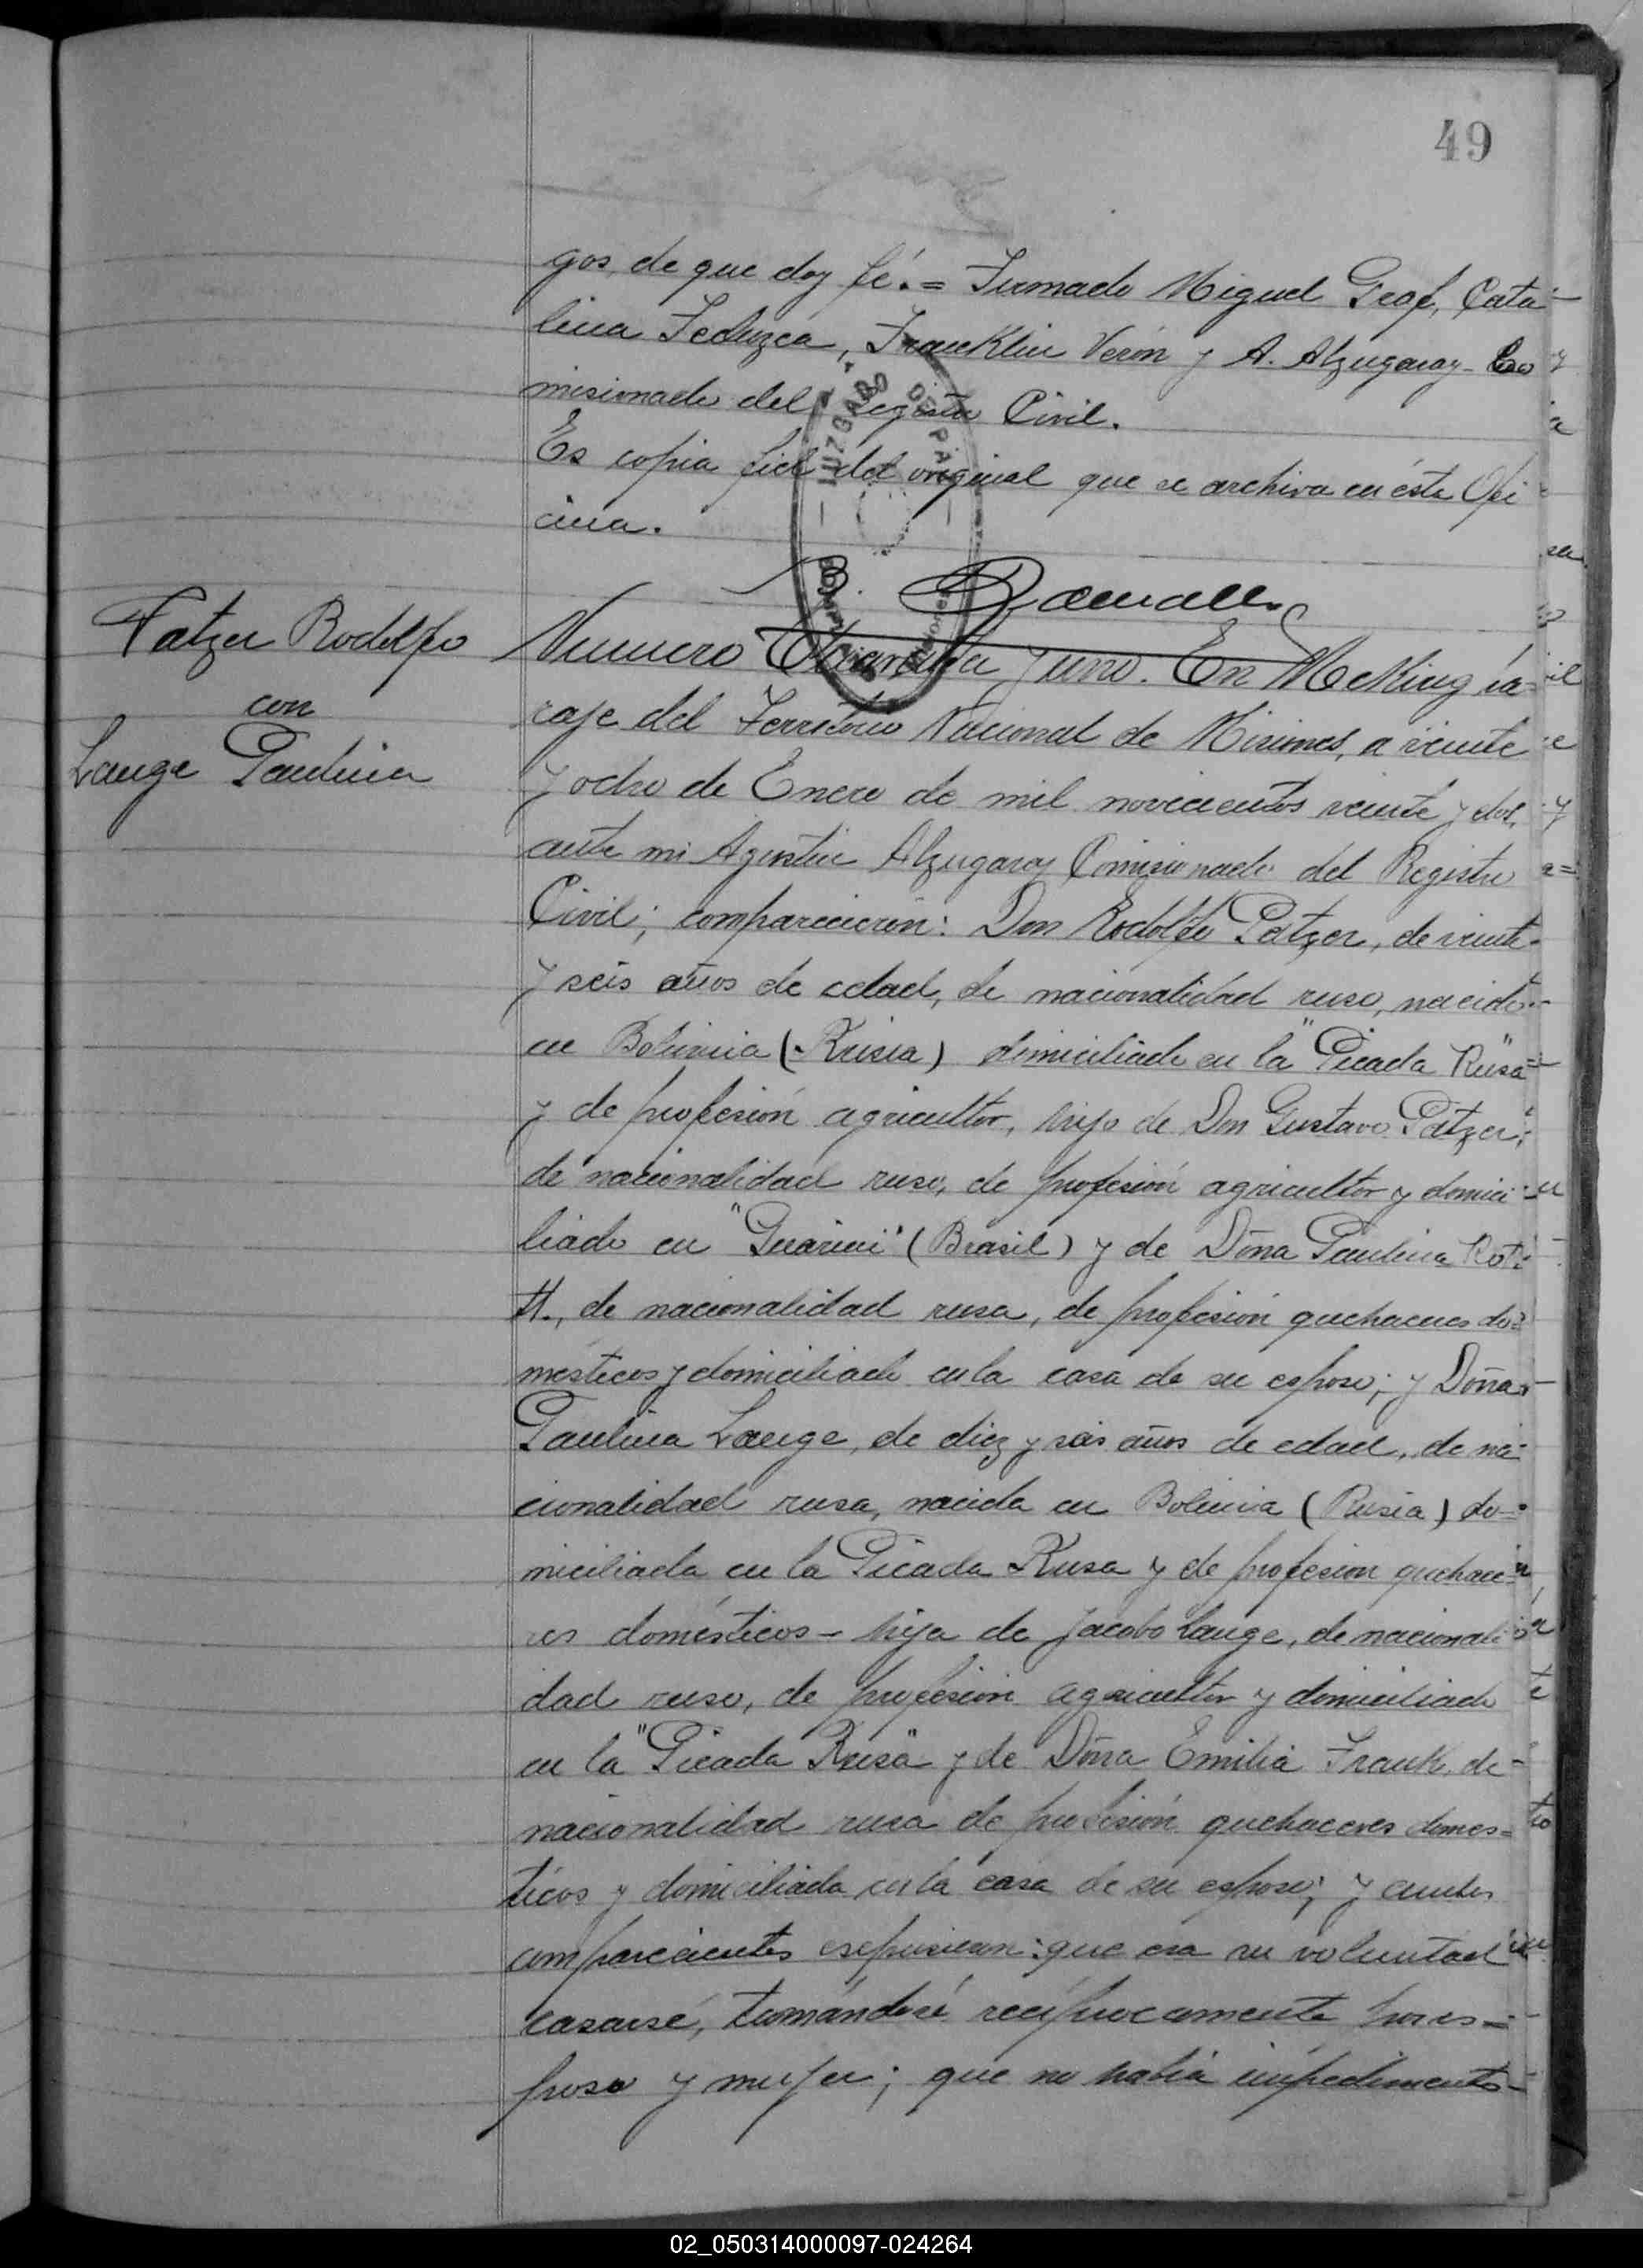 49
gos, de que doy fé. = Firmado Miguel Graf, Cata-
lina Feduzca, Francklin Verón y A. Alzugaray - Co
misionado del Registro Civil.
Es copia fiel del original que se archiva en ésta Ofi
cina.
JUZGADO DE PAZ
B. Ramallo
Patzer Rodolfo
con
Lange Paulina
Numero Cuarenta y uno. En Mecking pa
raje del Territorio Nacional de Misiones, a veinte
y ocho de Enero de mil novecientos veinte y dos,
ante mi Agustin Alzugaray Comisionado del Registro
Civil; comparecieron: Don Rodolfo Patzer, de veinte
y seis años de edad, de nacionalidad ruso, nacido
en Bolinia (Rusia) domiciliado en la "Picada Rusa"
y de profesión agricultor, hijo de Don Gustavo Patzer,
de nacionalidad ruso, de profesión agricultor y domici
liado en "Guarini" (Brasil) y de Doña Paulina Rot
H., de nacionalidad rusa, de profesión quehaceres do=
mesticos y domiciliado en la casa de su esposo; y Doña
Paulina Lange, de diez y seis años de edad, de na-
cionalidad rusa, nacida en Bolinia (Rusia) do=
miciliada en la Picada Rusa y de profesion quehace
res domésticos - hija de Jacobo Lange, de nacionali
dad ruso, de profesion agricultor y domiciliado
en la "Picada Rusa" y de Doña Emilia Frank, de
nacionalidad rusa de profesión quehaceres domes=
ticos y domiciliada en la casa de su esposo; y ambos
comparecientes expusieron: que era su voluntad
casarse, tomándosé reciprocamente por es=
poso y mujer; que no había impedimento
02_050314000097-024264